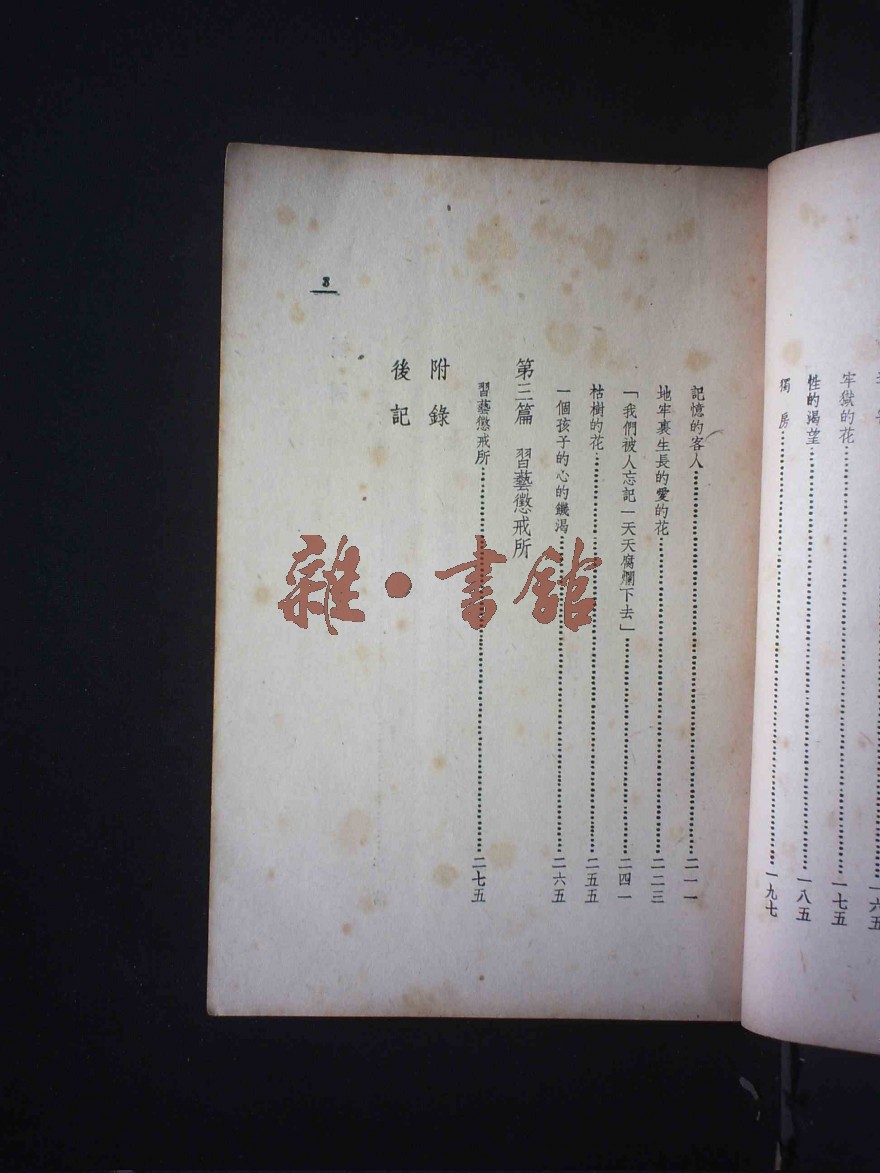 牢獄的花……一七五
性的渴望……一八五
獨房……一九七
記憶的客人……二一一
地牢裏生長的愛的花……二二三
「我們被人忘記一天天腐爛下去」……二四一
枯樹的花……二五五
一個孩子的心的饑渴……二六五
第三篇 習藝懲戒所
習藝懲戒所……二七五
附錄
後記
3
雜·書館